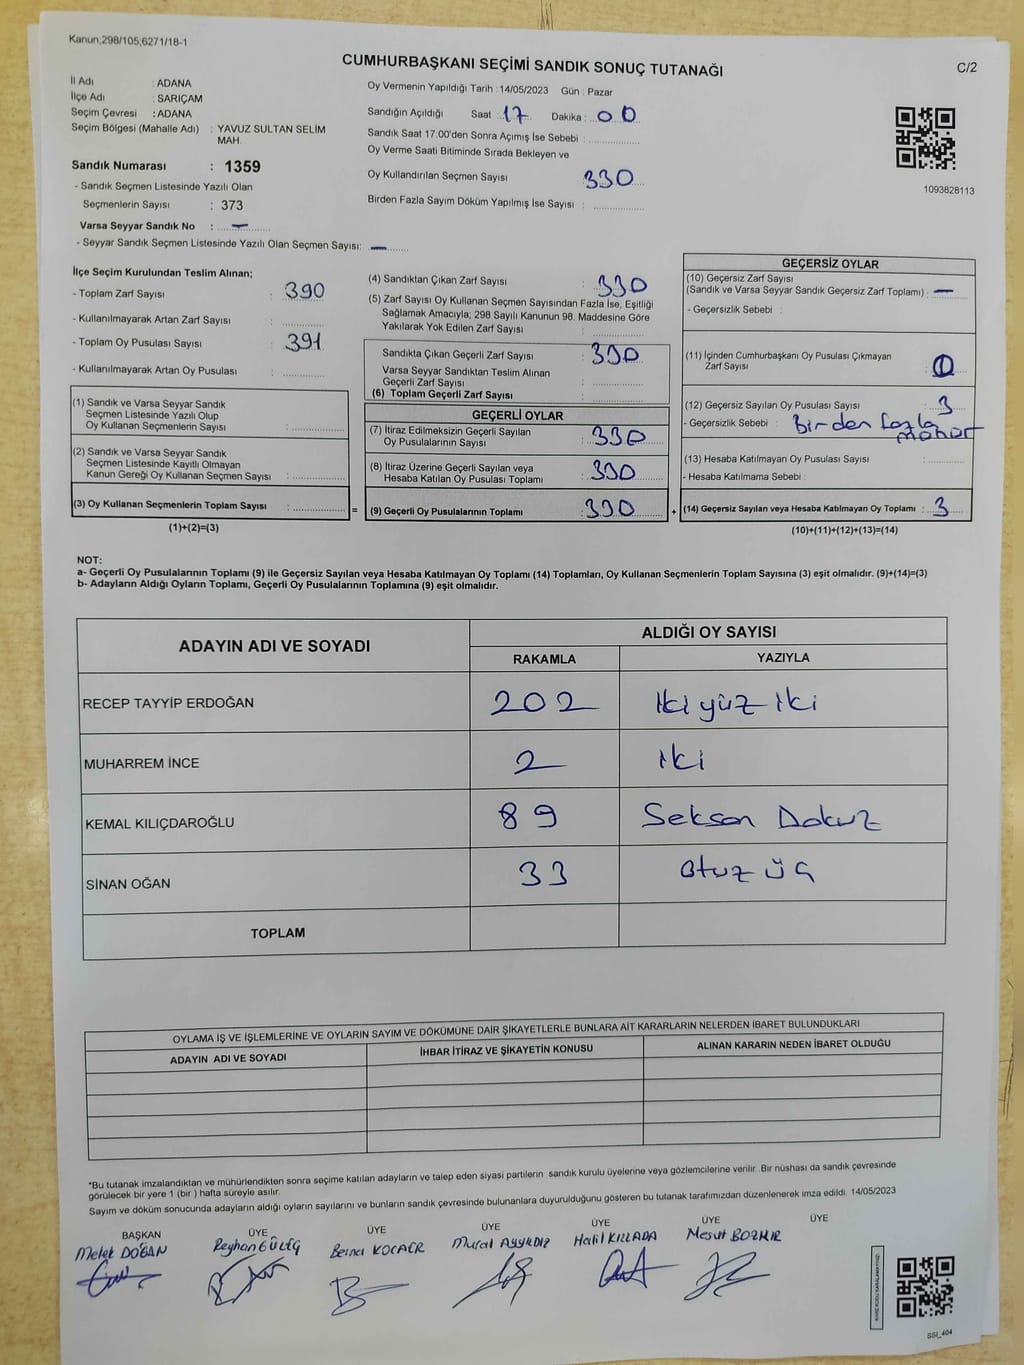 Kanun,298/105;6271/18-1
CUMHURBAŞKANI SEÇİMİ SANDIK SONUÇ TUTANAĞI
C/2
İl Adı : ADANA
İlçe Adı : SARIÇAM
Seçim Çevresi : ADANA
Seçim Bölgesi (Mahalle Adı) : YAVUZ SULTAN SELİM
MAH.
Sandık Numarası : 1359
- Sandık Seçmen Listesinde Yazılı Olan
Seçmenlerin Sayısı : 373
Varsa Seyyar Sandık No : —
- Seyyar Sandık Seçmen Listesinde Yazılı Olan Seçmen Sayısı: —
Oy Vermenin Yapıldığı Tarih : 14/05/2023 Gün : Pazar
Sandığın Açıldığı Saat : 17 Dakika : 00
Sandık Saat 17:00'den Sonra Açımış İse Sebebi :
Oy Verme Saati Bitiminde Sırada Bekleyen ve
Oy Kullandırılan Seçmen Sayısı 330
Birden Fazla Sayım Döküm Yapılmış İse Sayısı :
1093828113
İlçe Seçim Kurulundan Teslim Alınan;
- Toplam Zarf Sayısı : 390
- Kullanılmayarak Artan Zarf Sayısı :
- Toplam Oy Pusulası Sayısı : 391
- Kullanılmayarak Artan Oy Pusulası :
(1) Sandık ve Varsa Seyyar Sandık
Seçmen Listesinde Yazılı Olup
Oy Kullanan Seçmenlerin Sayısı :
(2) Sandık ve Varsa Seyyar Sandık
Seçmen Listesinde Kayıtlı Olmayan
Kanun Gereği Oy Kullanan Seçmen Sayısı :
(3) Oy Kullanan Seçmenlerin Toplam Sayısı :
(1)+(2)=(3)
=
(4) Sandıktan Çıkan Zarf Sayısı : 330
(5) Zarf Sayısı Oy Kullanan Seçmen Sayısından Fazla İse, Eşitliği
Sağlamak Amacıyla; 298 Sayılı Kanunun 98. Maddesine Göre
Yakılarak Yok Edilen Zarf Sayısı :
Sandıkta Çıkan Geçerli Zarf Sayısı : 330
Varsa Seyyar Sandıktan Teslim Alınan
Geçerli Zarf Sayısı :
(6) Toplam Geçerli Zarf Sayısı :
GEÇERLİ OYLAR
(7) İtiraz Edilmeksizin Geçerli Sayılan
Oy Pusulalarının Sayısı : 330
(8) İtiraz Üzerine Geçerli Sayılan veya
Hesaba Katılan Oy Pusulası Toplamı : 330
(9) Geçerli Oy Pusulalarının Toplamı : 330
+
GEÇERSİZ OYLAR
(10) Geçersiz Zarf Sayısı
(Sandık ve Varsa Seyyar Sandık Geçersiz Zarf Toplamı) : —
- Geçersizlik Sebebi :
(11) İçinden Cumhurbaşkanı Oy Pusulası Çıkmayan
Zarf Sayısı :
(12) Geçersiz Sayılan Oy Pusulası Sayısı : 3
- Geçersizlik Sebebi : Birden fazla
mühür
(13) Hesaba Katılmayan Oy Pusulası Sayısı :
- Hesaba Katılmama Sebebi :
(14) Geçersiz Sayılan veya Hesaba Katılmayan Oy Toplamı : 3
(10)+(11)+(12)+(13)=(14)
NOT:
a- Geçerli Oy Pusulalarının Toplamı (9) ile Geçersiz Sayılan veya Hesaba Katılmayan Oy Toplamı (14) Toplamları, Oy Kullanan Seçmenlerin Toplam Sayısına (3) eşit olmalıdır. (9)+(14)=(3)
b- Adayların Aldığı Oyların Toplamı, Geçerli Oy Pusulalarının Toplamına (9) eşit olmalıdır.
ADAYIN ADI VE SOYADI
ALDIĞI OY SAYISI
RAKAMLA YAZIYLA
RECEP TAYYİP ERDOĞAN 202 iki yüz iki
MUHARREM İNCE 2 iki
KEMAL KILIÇDAROĞLU 89 Seksen Dokuz
SİNAN OĞAN 33 Otuz üç
TOPLAM
OYLAMA İŞ VE İŞLEMLERİNE VE OYLARIN SAYIM VE DÖKÜMÜNE DAİR ŞİKAYETLERLE BUNLARA AİT KARARLARIN NELERDEN İBARET BULUNDUKLARI
ADAYIN ADI VE SOYADI İHBAR İTİRAZ VE ŞİKAYETİN KONUSU ALINAN KARARIN NEDEN İBARET OLDUĞU
*Bu tutanak imzalandıktan ve mühürlendikten sonra seçime katılan adayların ve talep eden siyasi partilerin sandık kurulu üyelerine veya gözlemcilerine verilir. Bir nüshası da sandık çevresinde
görülecek bir yere 1 (bir ) hafta süreyle asılır.
Sayım ve döküm sonucunda adayların aldığı oyların sayılarını ve bunların sandık çevresinde bulunanlara duyurulduğunu gösteren bu tutanak tarafımızdan düzenlenerek imza edildi. 14/05/2023
BAŞKAN ÜYE ÜYE ÜYE ÜYE ÜYE ÜYE
Melek DOĞAN Reyhan GÜLEÇ Berna KOCAER Murat AYYILDIZ Halil KILLADA Mesut BOZKIR
SSI_404